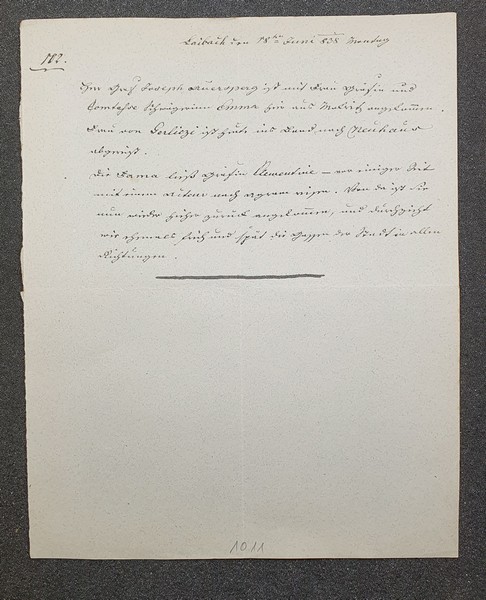 Laibach den 18ten Juni 838 Montag
182.
Herr Graf Joseph Auersperg ist mit Frau Gräfin und
Comtesse Schwägerinn Emma hier aus Mokritz angekommen.
Frau von Gerliczi ist heute ins Land nach Neuhaus
abgereist.
Die Fama ließ Gräfin Clementine – vor einiger Zeit
mit einem Acteur nach Agram reisen. Von da ist Sie
nun wieder hieher zurück angekommen, und durchzieht
wie ehemals früh und spät die Gassen der Stadt in allen
Richtungen.
1011